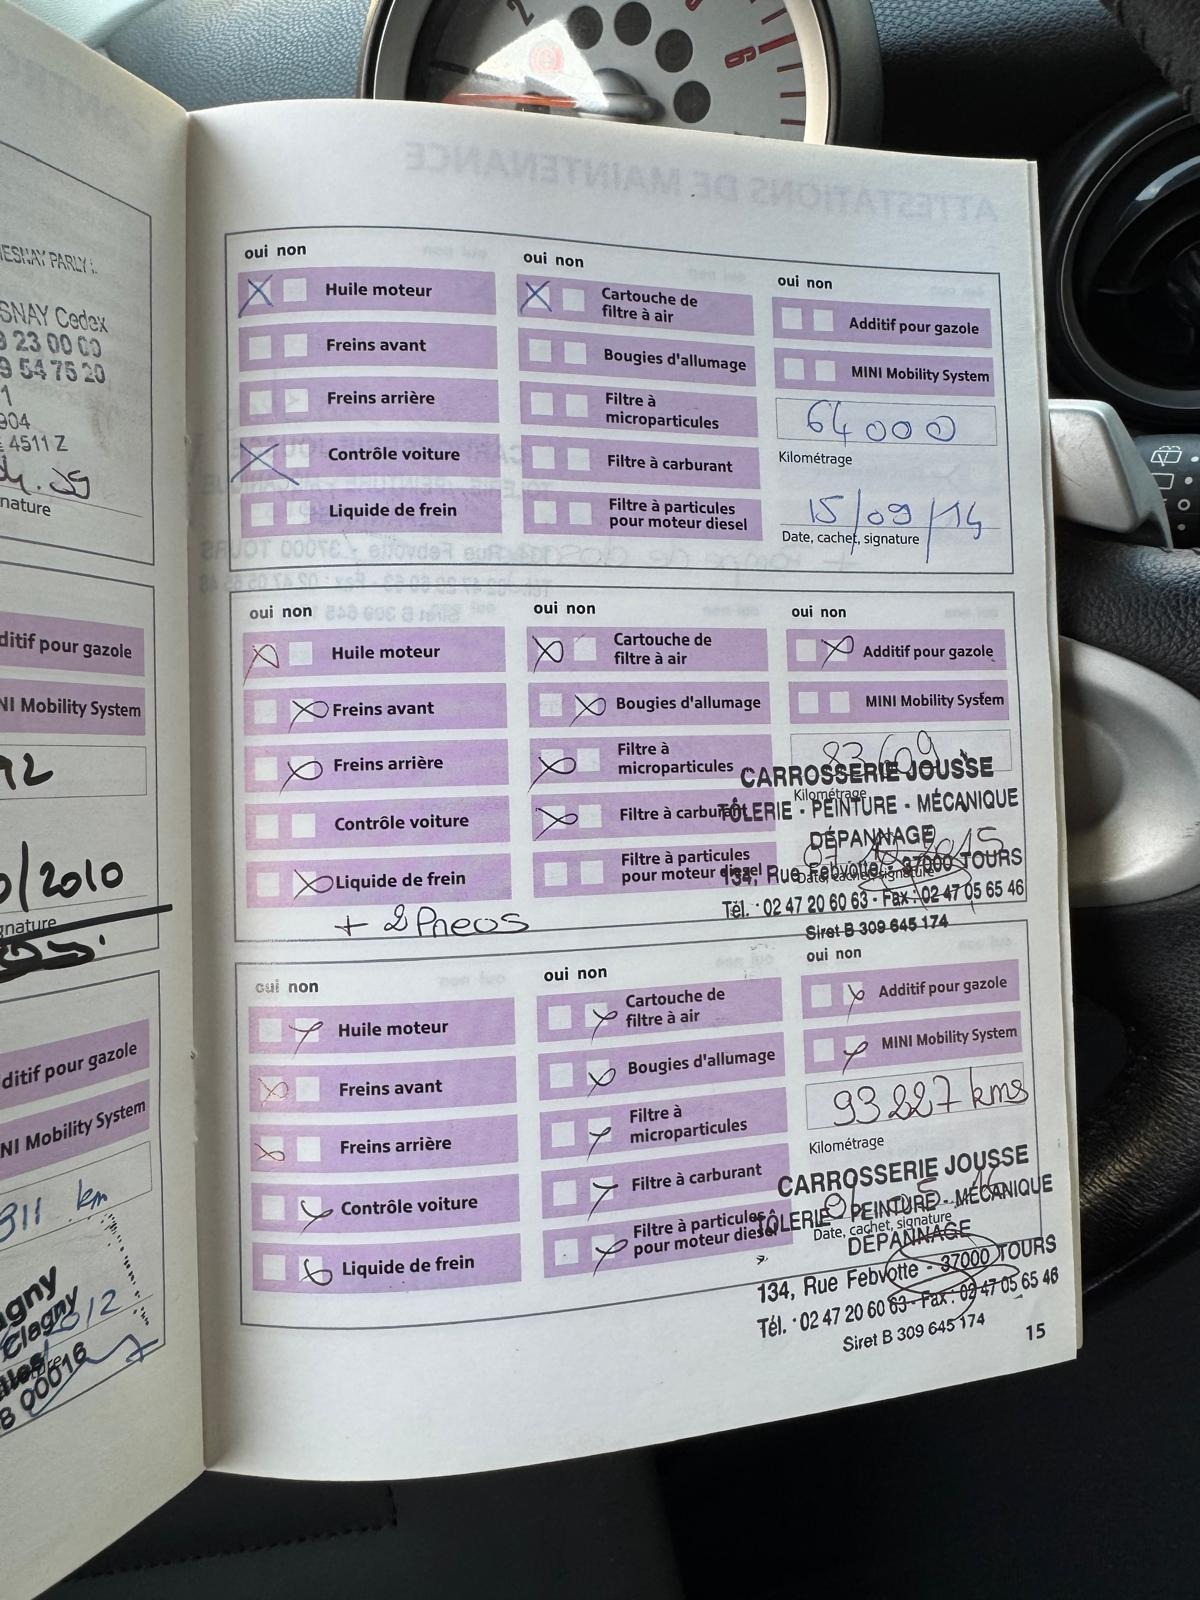 HESNAY PARLY
SNAY Cedex
9 23 00 00
9 54 75 20
904
E 4511 Z
nature
ditif pour gazole
NI Mobility System
92
0/2010
gnature
ditif pour gazole
NI Mobility System
311 km
agny
Clagny
2012
B 00016
ATTESTATIONS DE MAINTENANCE
oui non
Huile moteur
Freins avant
Freins arrière
Contrôle voiture
Liquide de frein
oui non
Cartouche de
filtre à air
Bougies d'allumage
Filtre à
microparticules
Filtre à carburant
Filtre à particules
pour moteur diesel
oui non
Additif pour gazole
MINI Mobility System
64 000
Kilométrage
15/09/14
Date, cachet, signature
oui non
Huile moteur
Freins avant
Freins arrière
Contrôle voiture
Liquide de frein
+ 2 Pneus
oui non
Cartouche de
filtre à air
Bougies d'allumage
Filtre à
microparticules
Filtre à carburant
Filtre à particules
pour moteur diesel
oui non
Additif pour gazole
MINI Mobility System
83609
Kilométrage
CARROSSERIE JOUSSE
TÔLERIE - PEINTURE - MÉCANIQUE
DÉPANNAGE
Date, cachet, signature
134, Rue Febvotte - 37000 TOURS
Tél. 02 47 20 60 63 - Fax : 02 47 05 65 46
Siret B 309 645 174
oui non
Huile moteur
Freins avant
Freins arrière
Contrôle voiture
Liquide de frein
oui non
Cartouche de
filtre à air
Bougies d'allumage
Filtre à
microparticules
Filtre à carburant
Filtre à particules
pour moteur diesel
oui non
Additif pour gazole
MINI Mobility System
93227 kms
Kilométrage
CARROSSERIE JOUSSE
TÔLERIE - PEINTURE - MÉCANIQUE
Date, cachet, signature
DÉPANNAGE
134, Rue Febvotte - 37000 TOURS
Tél. 02 47 20 60 63 - Fax : 02 47 05 65 46
Siret B 309 645 174
15